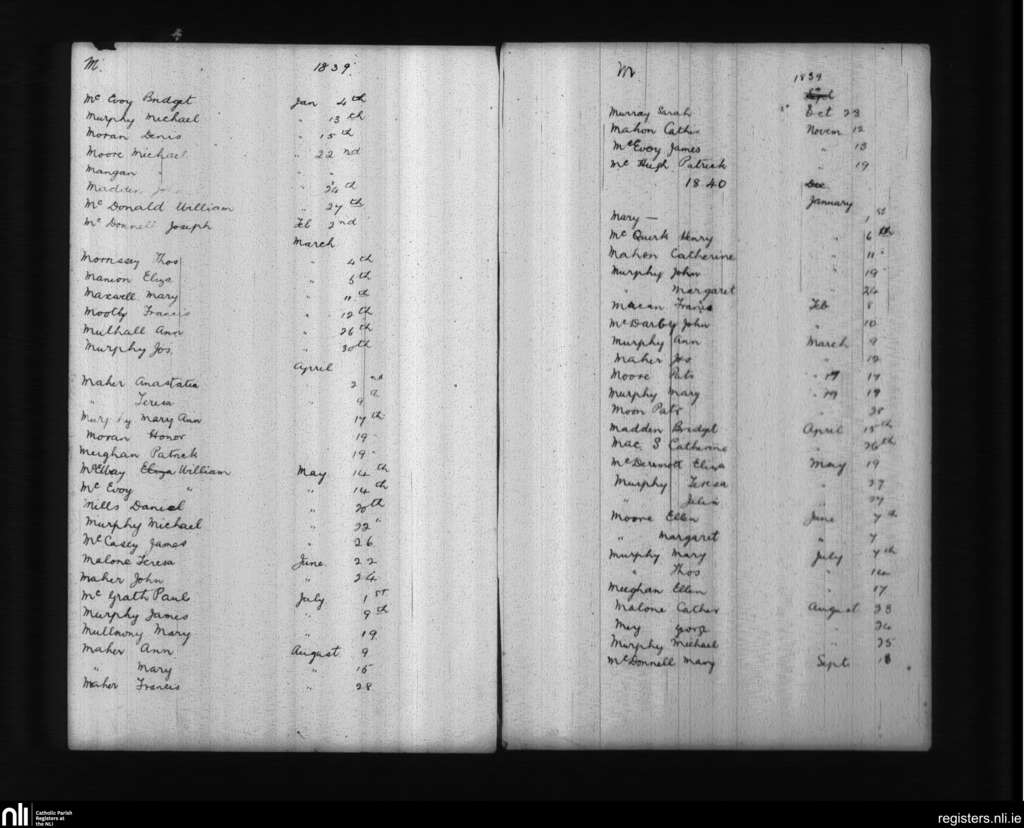 M. 1839.
Mc Evoy Bridget Jan 4th
Murphy Michael " 13th
Moran Denis " 15th
Moore Michael " 22nd
Mangan " " "
Madden " 24th
Mc Donald William " 27th
Mc Donnell Joseph Feb 2nd
March
Morrissey Thos " 4th
Manion Eliza " 5th
Maxwell Mary " 11th
Mootly Francis " 12th
Mulhall Ann " 26th
Murphy Jos. " 30th
April
Maher Anastatia 2nd
" Teresa 9th
Murphy Mary Ann 17th
Moran Honor 19
Meighan Patrick 19
McElvay Eliza William May 14th
Mc Evoy " " 14th
Mills Daniel " 20th
Murphy Michael " 22"
McCasey James " 26
Malone Teresa June 22
Maher John " 24
Mc Grath Paul July 1st
Murphy James " 9th
Mullowny Mary " 19
Maher Ann August 9
" Mary " 15
Maher Francis " 28
M 1839
Sept
Murray Sarah Oct 23
Mahon Cathe Novem 12
McEvoy James " 13
Mc Hugh Patrick " 19
1840 Dec
January
Mary — 1st
Mc Quirk Henry " 6th
Mahon Catherine " 11
Murphy John " 19
" Margaret " 24
Macan Francis Feb 8
McDarby John " 10
Murphy Ann March 9
Maher Jos " 12
Moore Patr " 17 17
Murphy Mary " 19 19
Moon Patr " 28
Madden Bridget April 15th
Mac S Catherine " 26th
McDermott Eliza May 19
Murphy Teresa " 27
" Julia " 27
Moore Ellen June 7th
" Margaret " 7
Murphy Mary July 7th
" Thos " 14
Meighan Ellen " 17
Malone Cather August 23
Mey George " 24
Murphy Michael " 25
McDonnell Mary Sept 18
nli Catholic Parish
Registers at
the NLI
registers.nli.ie